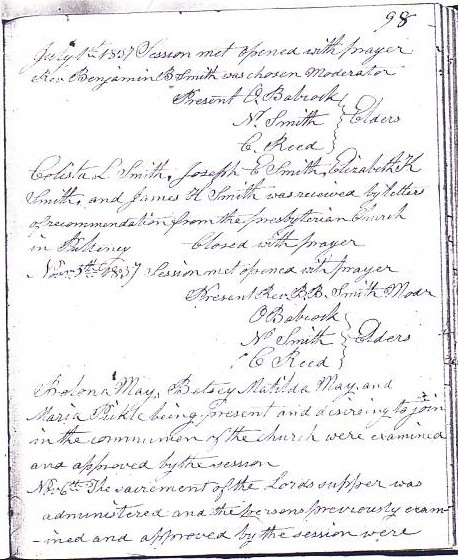 98
July 1st 1837 Session met opened with prayer
Rev. Benjamin B Smith was chosen Moderator
Present O. Babcock
N. Smith } Elders
C. Reed
Calista L. Smith, Joseph E Smith, Elizabeth K
Smith, and James H Smith was received by letters
of recommendation from the presbyterian Church
in Pulteney Closed with prayer
Nov. 5th 1837 Session met opened with prayer
Present Rev. B.B. Smith Modr
O Babcock
N. Smith } Elders
C Reed
May, Betsey Matilda May, and
Maria being present and to join
in the communion of the church were examined
and approved by the session
Nov. 6th The sacrement of the Lords supper was
administered and the persons previously exam-
-ined and approved by the session were